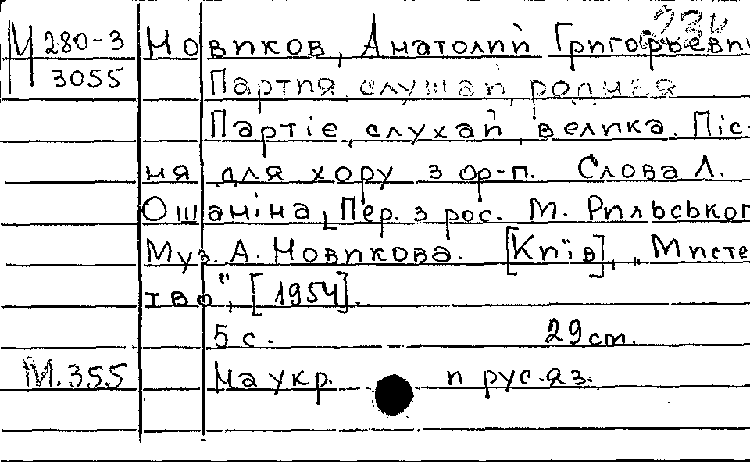 М 280-3 Новиков, Анатолий Григорьеви
3055 Партия, слушай, родная
Партіе, слухай, велика. Піс-
ня для хору з ор-п. Слова Л.
Ошаніна, Пер. з рос. М. Рильськог
Муз. А. Новикова. [Київ], „Мисте
тво", [1954].
5 с. 29 cm.
М.355 На укр. и рус. яз.